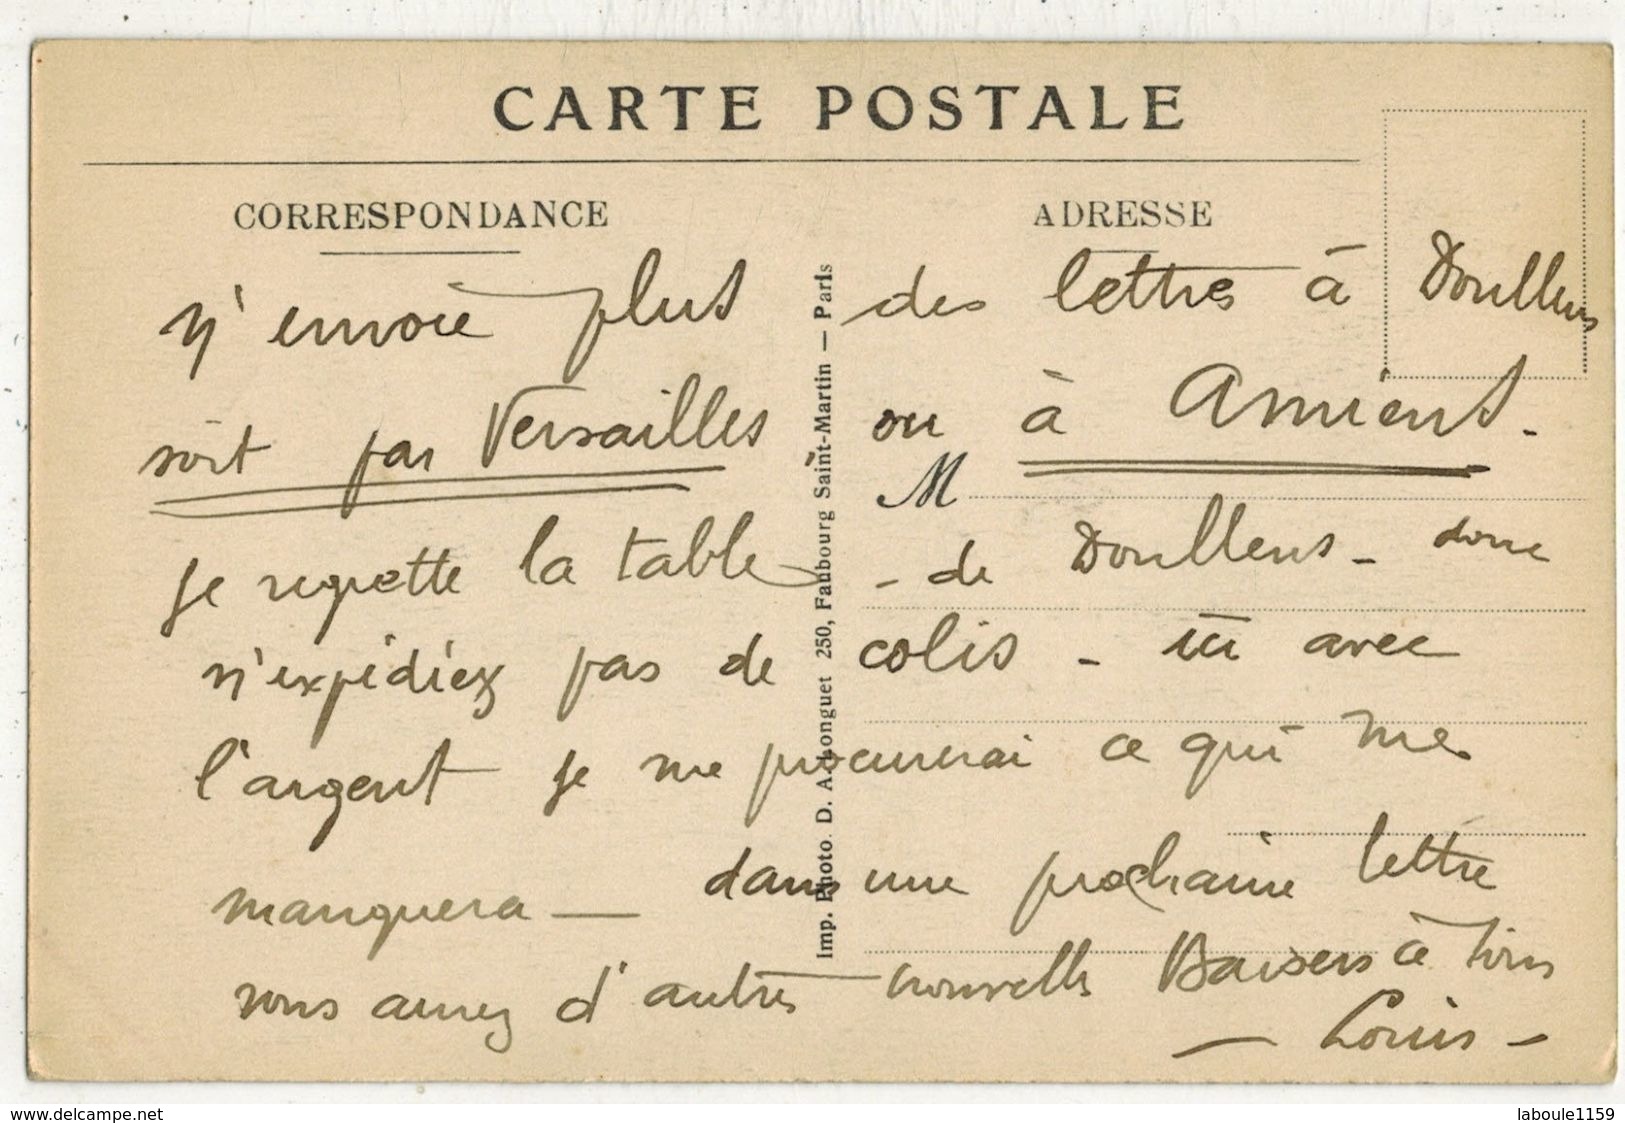 CARTE POSTALE
CORRESPONDANCE
ADRESSE
n'envoie plus des lettres à Doullens
soit par Versailles ou à Amiens.
M
je regrette la table - de Doullens - donc
n'expédiez pas de colis - ici avec
l'argent je me procurerai ce qui me
manquera — dans une prochaine lettre
vous aurez d'autres nouvelles Baisers à tous
— Louis —
Imp. Photo. D. A. Longuet 250, Faubourg Saint-Martin — Paris
www.delcampe.net
laboule1159